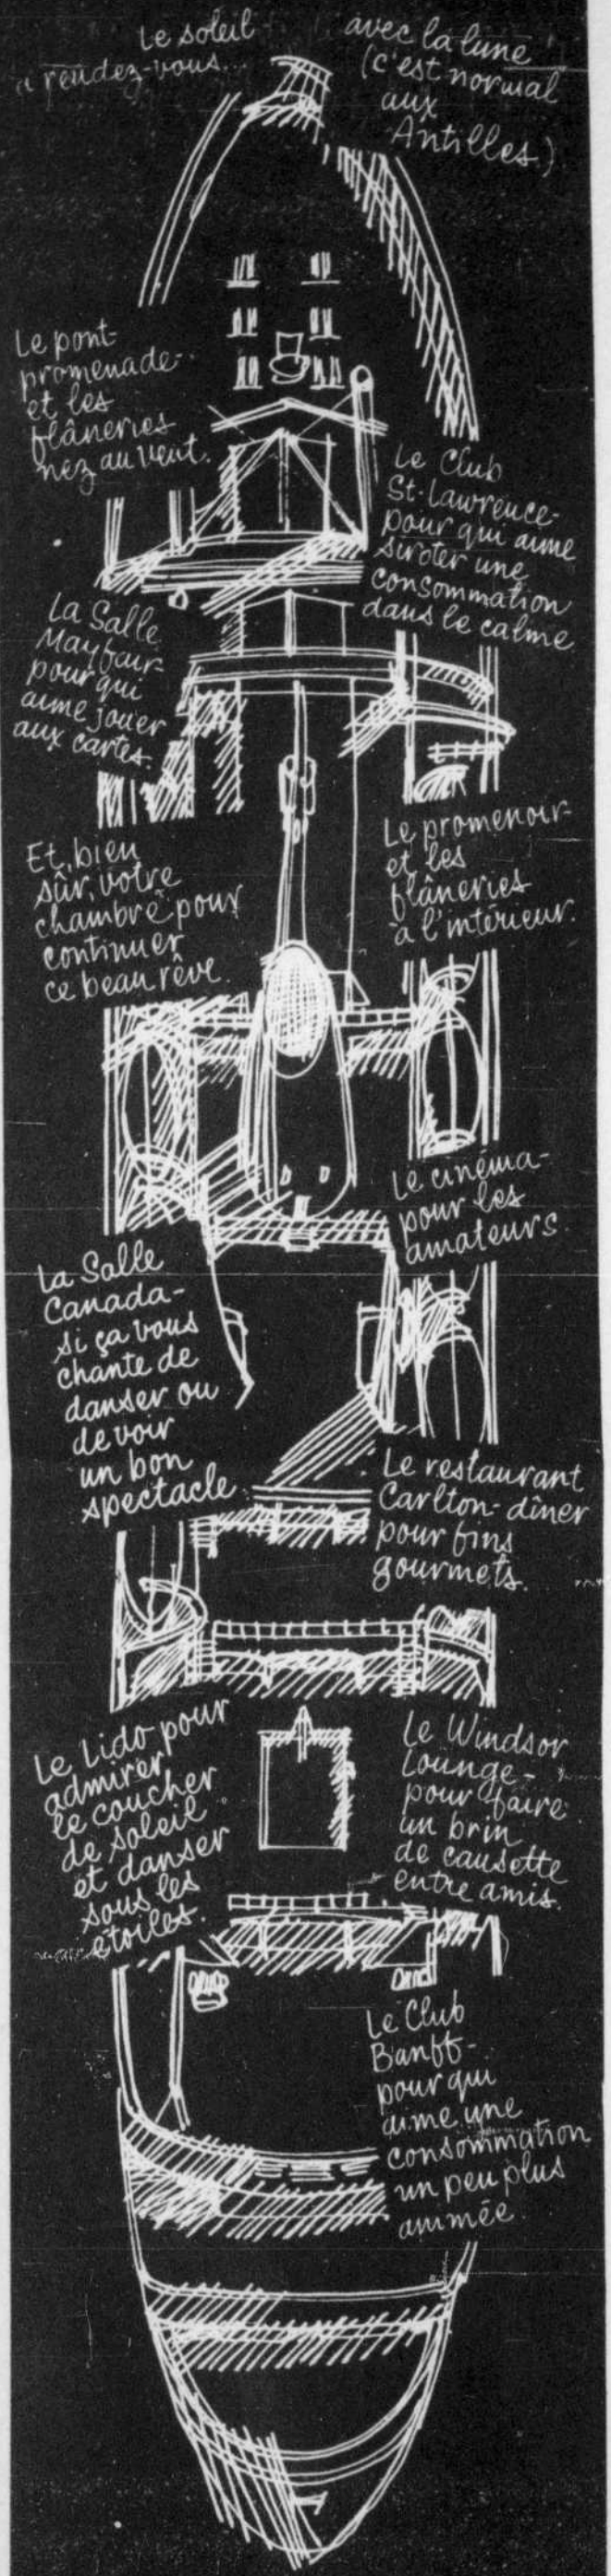 Le soleil
a rendez-vous...
avec la lune
(c'est normal
aux
Antilles.)
Le pont-
promenade-
et les
flâneries
nez au vent.
Le Club
St-Lawrence-
pour qui aime
siroter une
consommation
dans le calme
La Salle
Mayfair-
pour qui
aime jouer
aux cartes.
Et, bien
sûr, votre
chambre pour
continuer
ce beau rêve.
Le promenoir-
et les
flâneries
à l'intérieur.
Le cinéma-
pour les
amateurs.
La Salle
Canada-
si ça vous
chante de
danser ou
de voir
un bon
spectacle
Le restaurant
Carlton-dîner
pour fins
gourmets.
Le Lido pour
admirer
le coucher
de soleil
et danser
sous les
étoiles.
Le Windsor
Lounge-
pour faire
un brin
de causette
entre amis.
Le Club
Banff-
pour qui
aime une
consommation
un peu plus
animée.